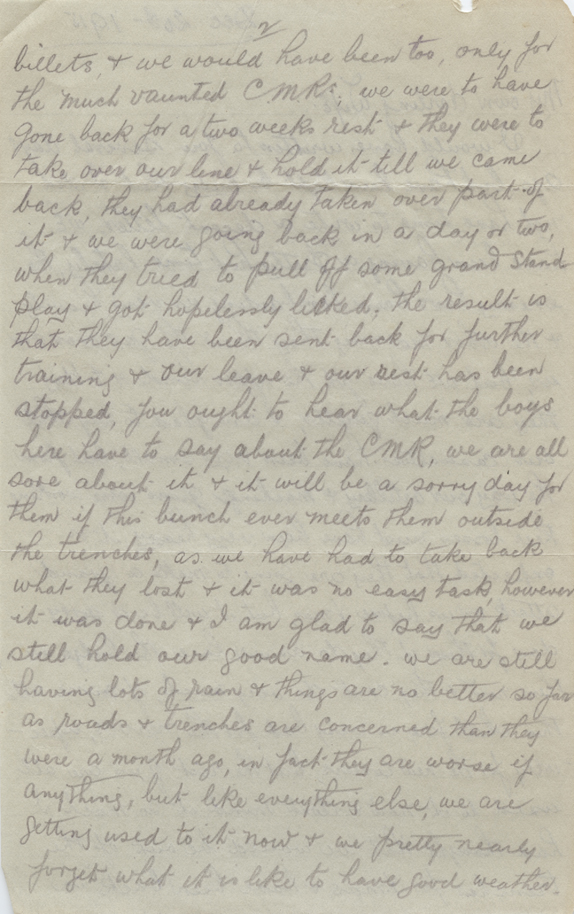 2
billets, & we would have been too, only for
the much vaunted C.M.Rs. we were to have
gone back for a two weeks rest & they were to
take over our line & hold it till we came
back, they had already taken over part of
it & we were going back in a day or two,
when they tried to pull off some grand stand
play & got hopelessly licked. the result is
that they have been sent back for further
training & our leave & our rest has been
stopped, you ought to hear what the boys
here have to say about the CMR, we are all
sore about it & it will be a sorry day for
them if this bunch ever meets them outside
the trenches, as we have had to take back
what they lost & it was no easy task however
it was done & I am glad to say that we
still hold our good name. we are still
having lots of rain & things are no better so far
as roads & trenches are concerned than they
were a month ago, in fact they are worse if
anything, but like everything else, we are
getting used to it now & we pretty nearly
forget what it is like to have good weather.